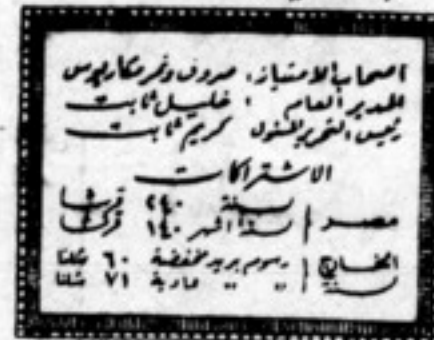 اصحاب الامتياز: صروف ونمر مكاريوس
المدير العام : خليل ثابت
رئيس التحرير المسئول كريم ثابت
الاشتراكات
مصر | لسنة ٢٤٠ قرشا
لستة اشهر ١٤٠ قرشا
الخارج | رسوم بريد مخفضة ٦٠ شلنا
لسنة | " " عادية ٧١ شلنا